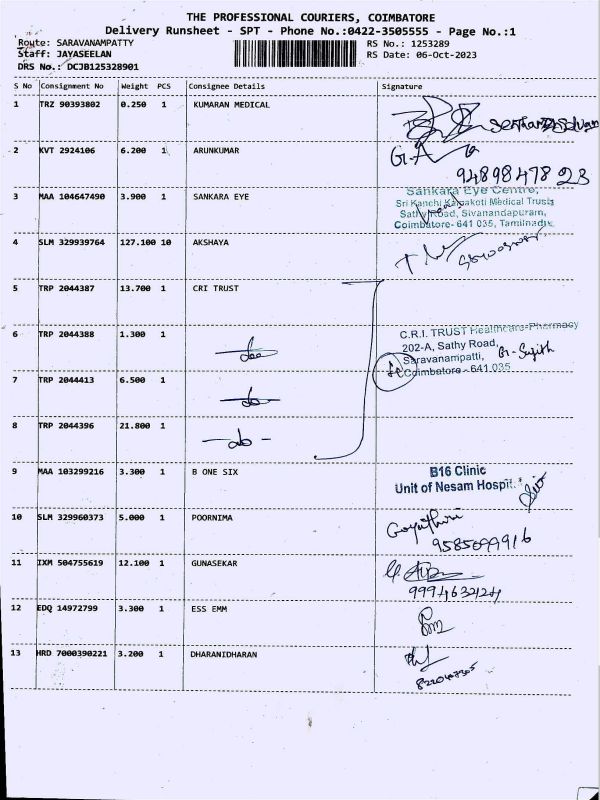 THE PROFESSIONAL COURIERS, COIMBATORE
Delivery Runsheet - SPT - Phone No.:0422-3505555 - Page No.:1
Route: SARAVANAMPATTY RS No.: 1253289
Staff: JAYASEELAN RS Date: 06-Oct-2023
DRS No.: DCJB125328901
S No Consignment No Weight PCS Consignee Details Signature
1 TRZ 90393802 0.250 1 KUMARAN MEDICAL
2 KVT 2924106 6.200 1 ARUNKUMAR G.A
9489847823
3 MAA 104647490 3.900 1 SANKARA EYE Sankara Eye Centre,
Sri Kanchi Kamakoti Medical Trust
Sathy Road, Sivanandapuram,
Coimbatore- 641 035, Tamilnadu.
4 SLM 329939764 127.100 10 AKSHAYA
5 TRP 2044387 13.700 1 CRI TRUST
6 TRP 2044388 1.300 1 do C.R.I. TRUST Healthcare-Pharmacy
202-A, Sathy Road,
Saravanampatti, G. Sujith
Coimbatore - 641 035
7 TRP 2044413 6.500 1 do
8 TRP 2044396 21.800 1 do
9 MAA 103299216 3.300 1 B ONE SIX B16 Clinic
Unit of Nesam Hospit
10 SLM 329960373 5.000 1 POORNIMA Gayathiri
9585099916
11 IXM 504755619 12.100 1 GUNASEKAR
9994632424
12 EDQ 14972799 3.300 1 ESS EMM
13 HRD 7000390221 3.200 1 DHARANIDHARAN